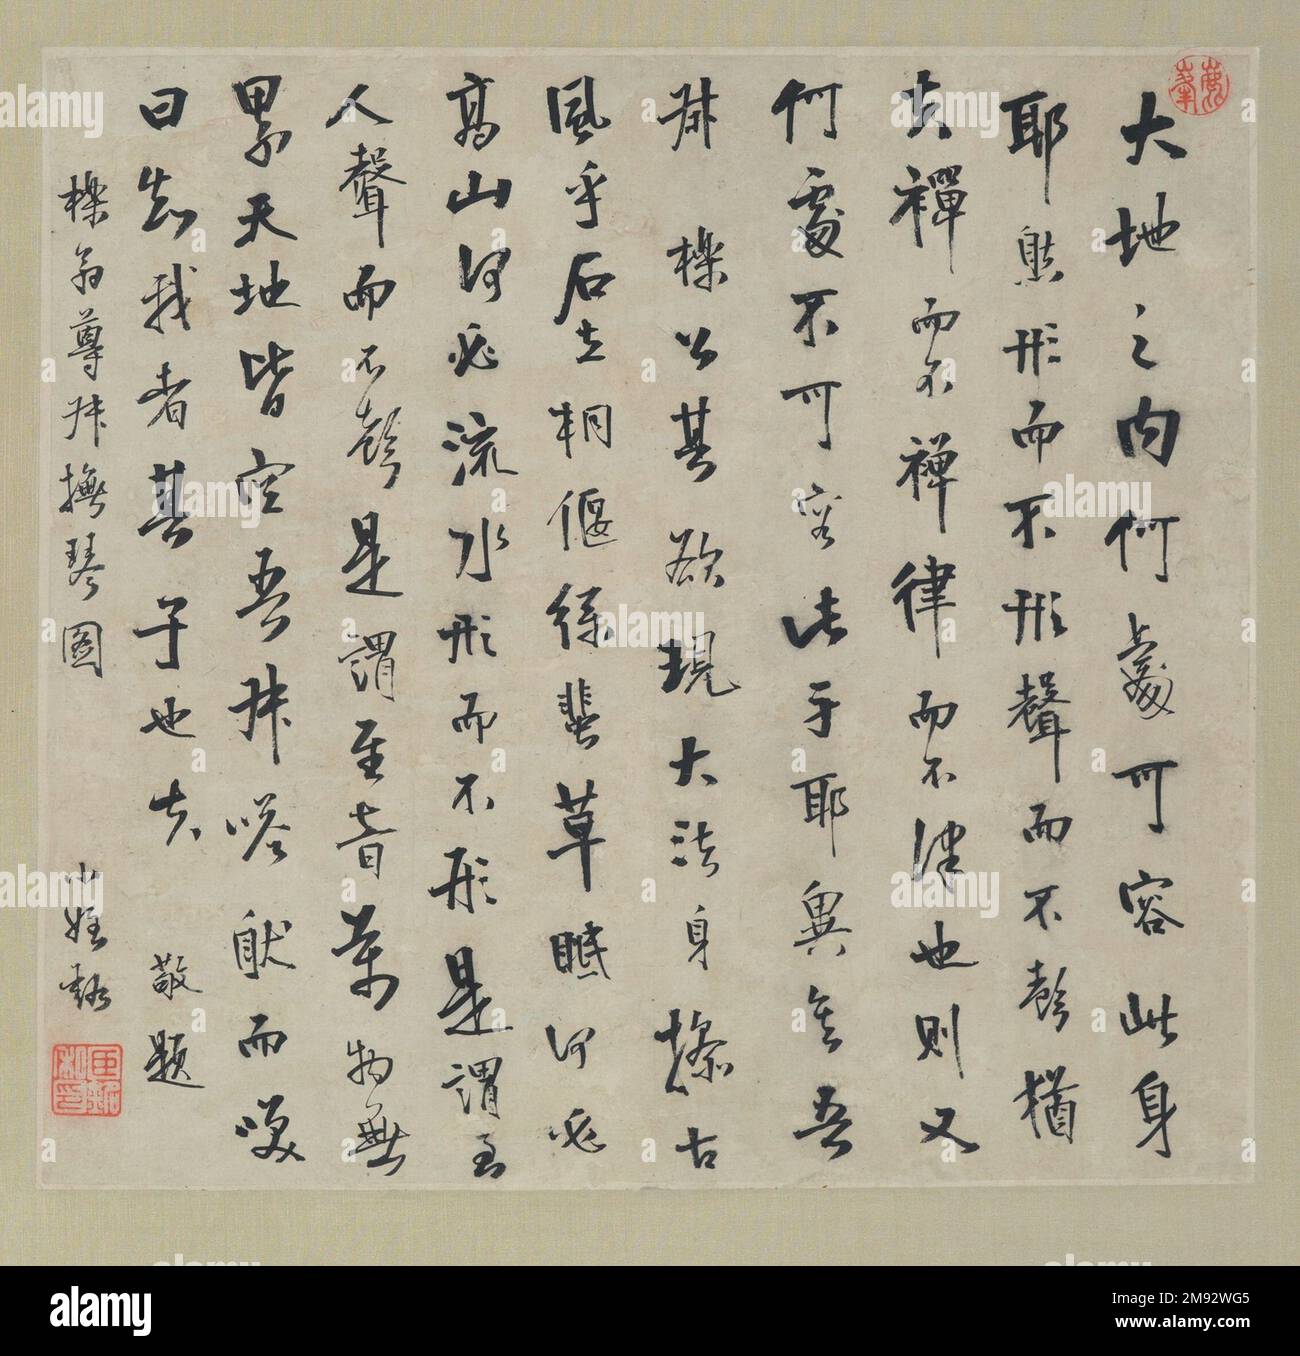 大地之内何處可容此身
耶然形而不形聲而不聲猶
夫禪而不禪律而不律也則又
何處不可容此乎耶異哉吾
師 櫟公其欲現大法身操古
風乎石立桐偃綠蕉草眠何必
高山何必流水形而不形是謂至
人聲而不聲是謂至音萬物無
累天地皆空吾師嗒然而嘆
曰知我者其子也夫
敬題
櫟翁尊師撫琴圖
alamy
Image ID: 2M92WG5
www.alamy.com